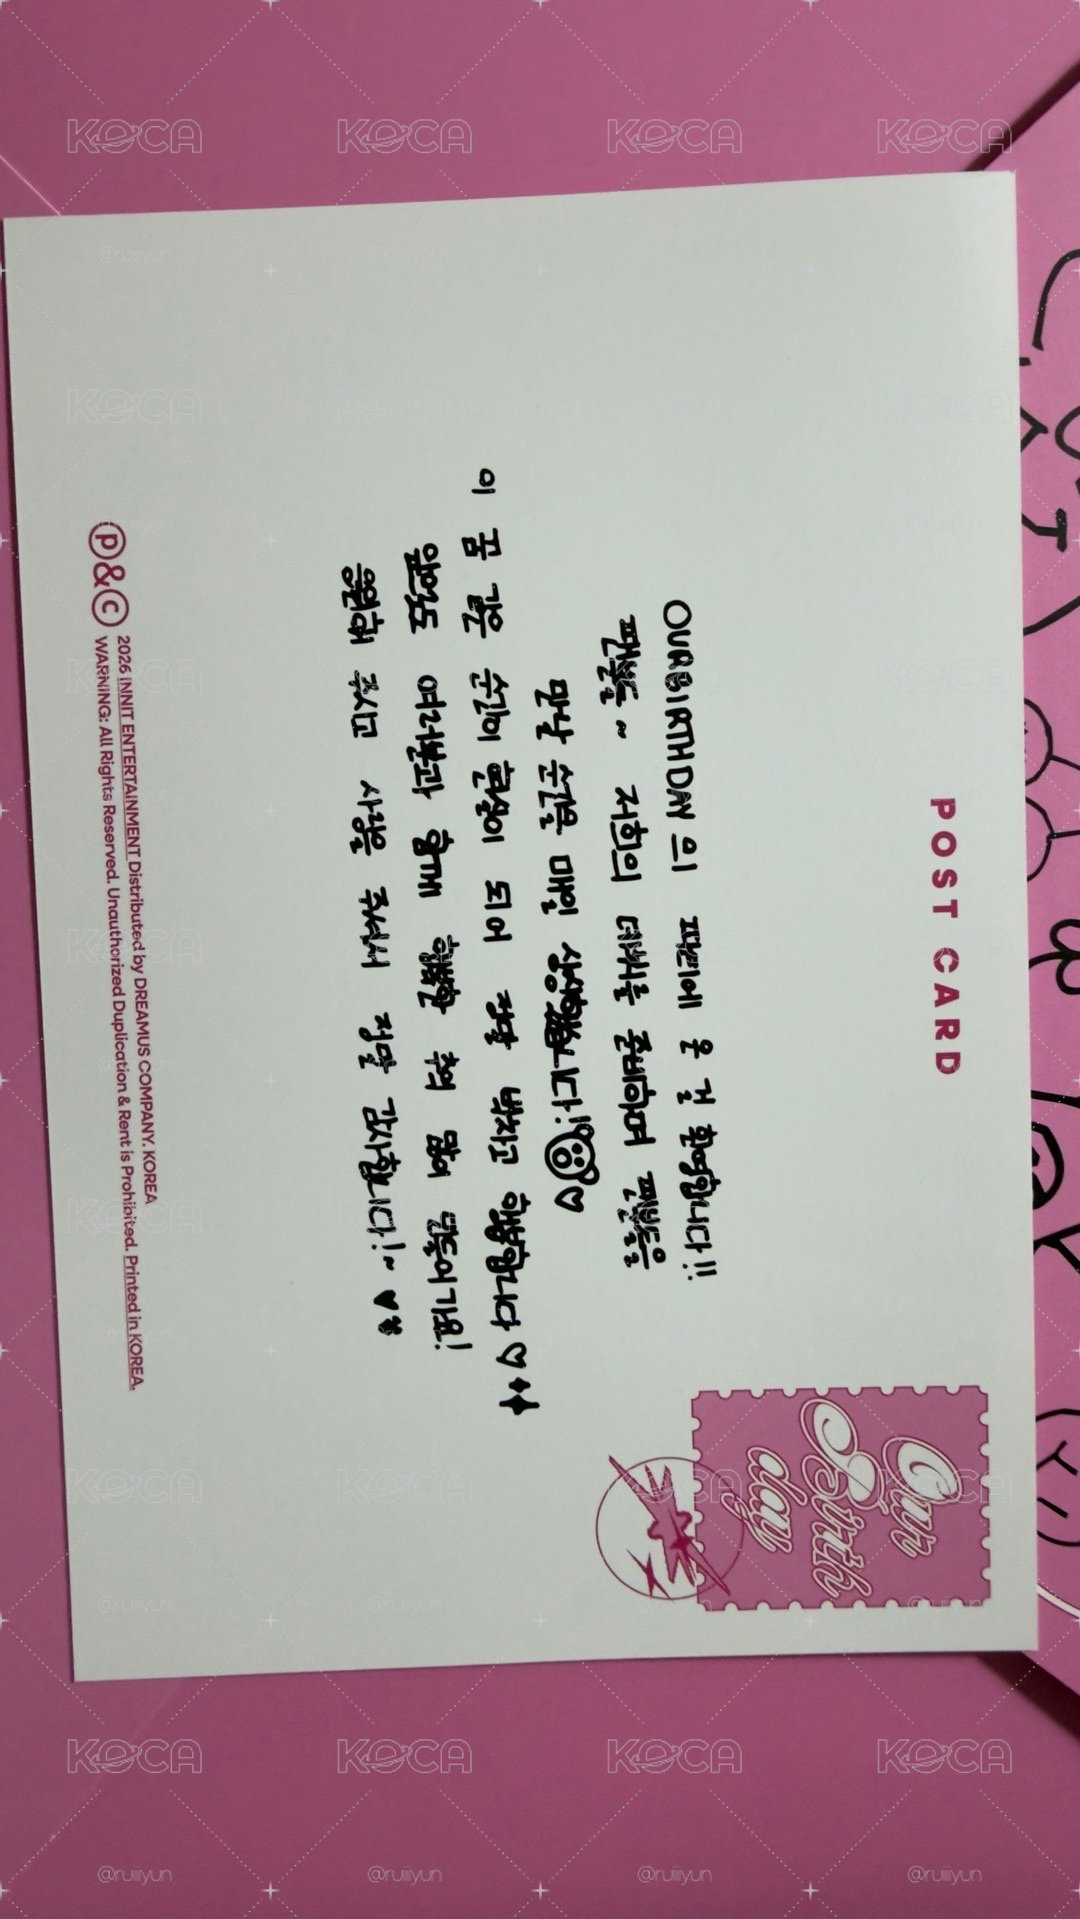 POST CARD
Our
Birth
day
OURBIRTHDAY의 파티에 온 걸 환영합니다!!
팬분들~ 저희의 데뷔를 준비하며 팬분들을
만날 순간을 매일 상상했습니다!♡
이 꿈 같은 순간이 현실이 되어 정말 벅차고 행복합니다♡
앞으로도 여러분과 함께 행복한 추억 많이 만들어가요!
응원해 주시고 사랑을 주셔서 정말 감사합니다!~ ♥
ⓟ&ⓒ 2026 INNIT ENTERTAINMENT Distributed by DREAMUS COMPANY. KOREA
WARNING: All Rights Reserved. Unauthorized Duplication & Rent is Prohibited. Printed in KOREA.
KOCA
@ruiiyun